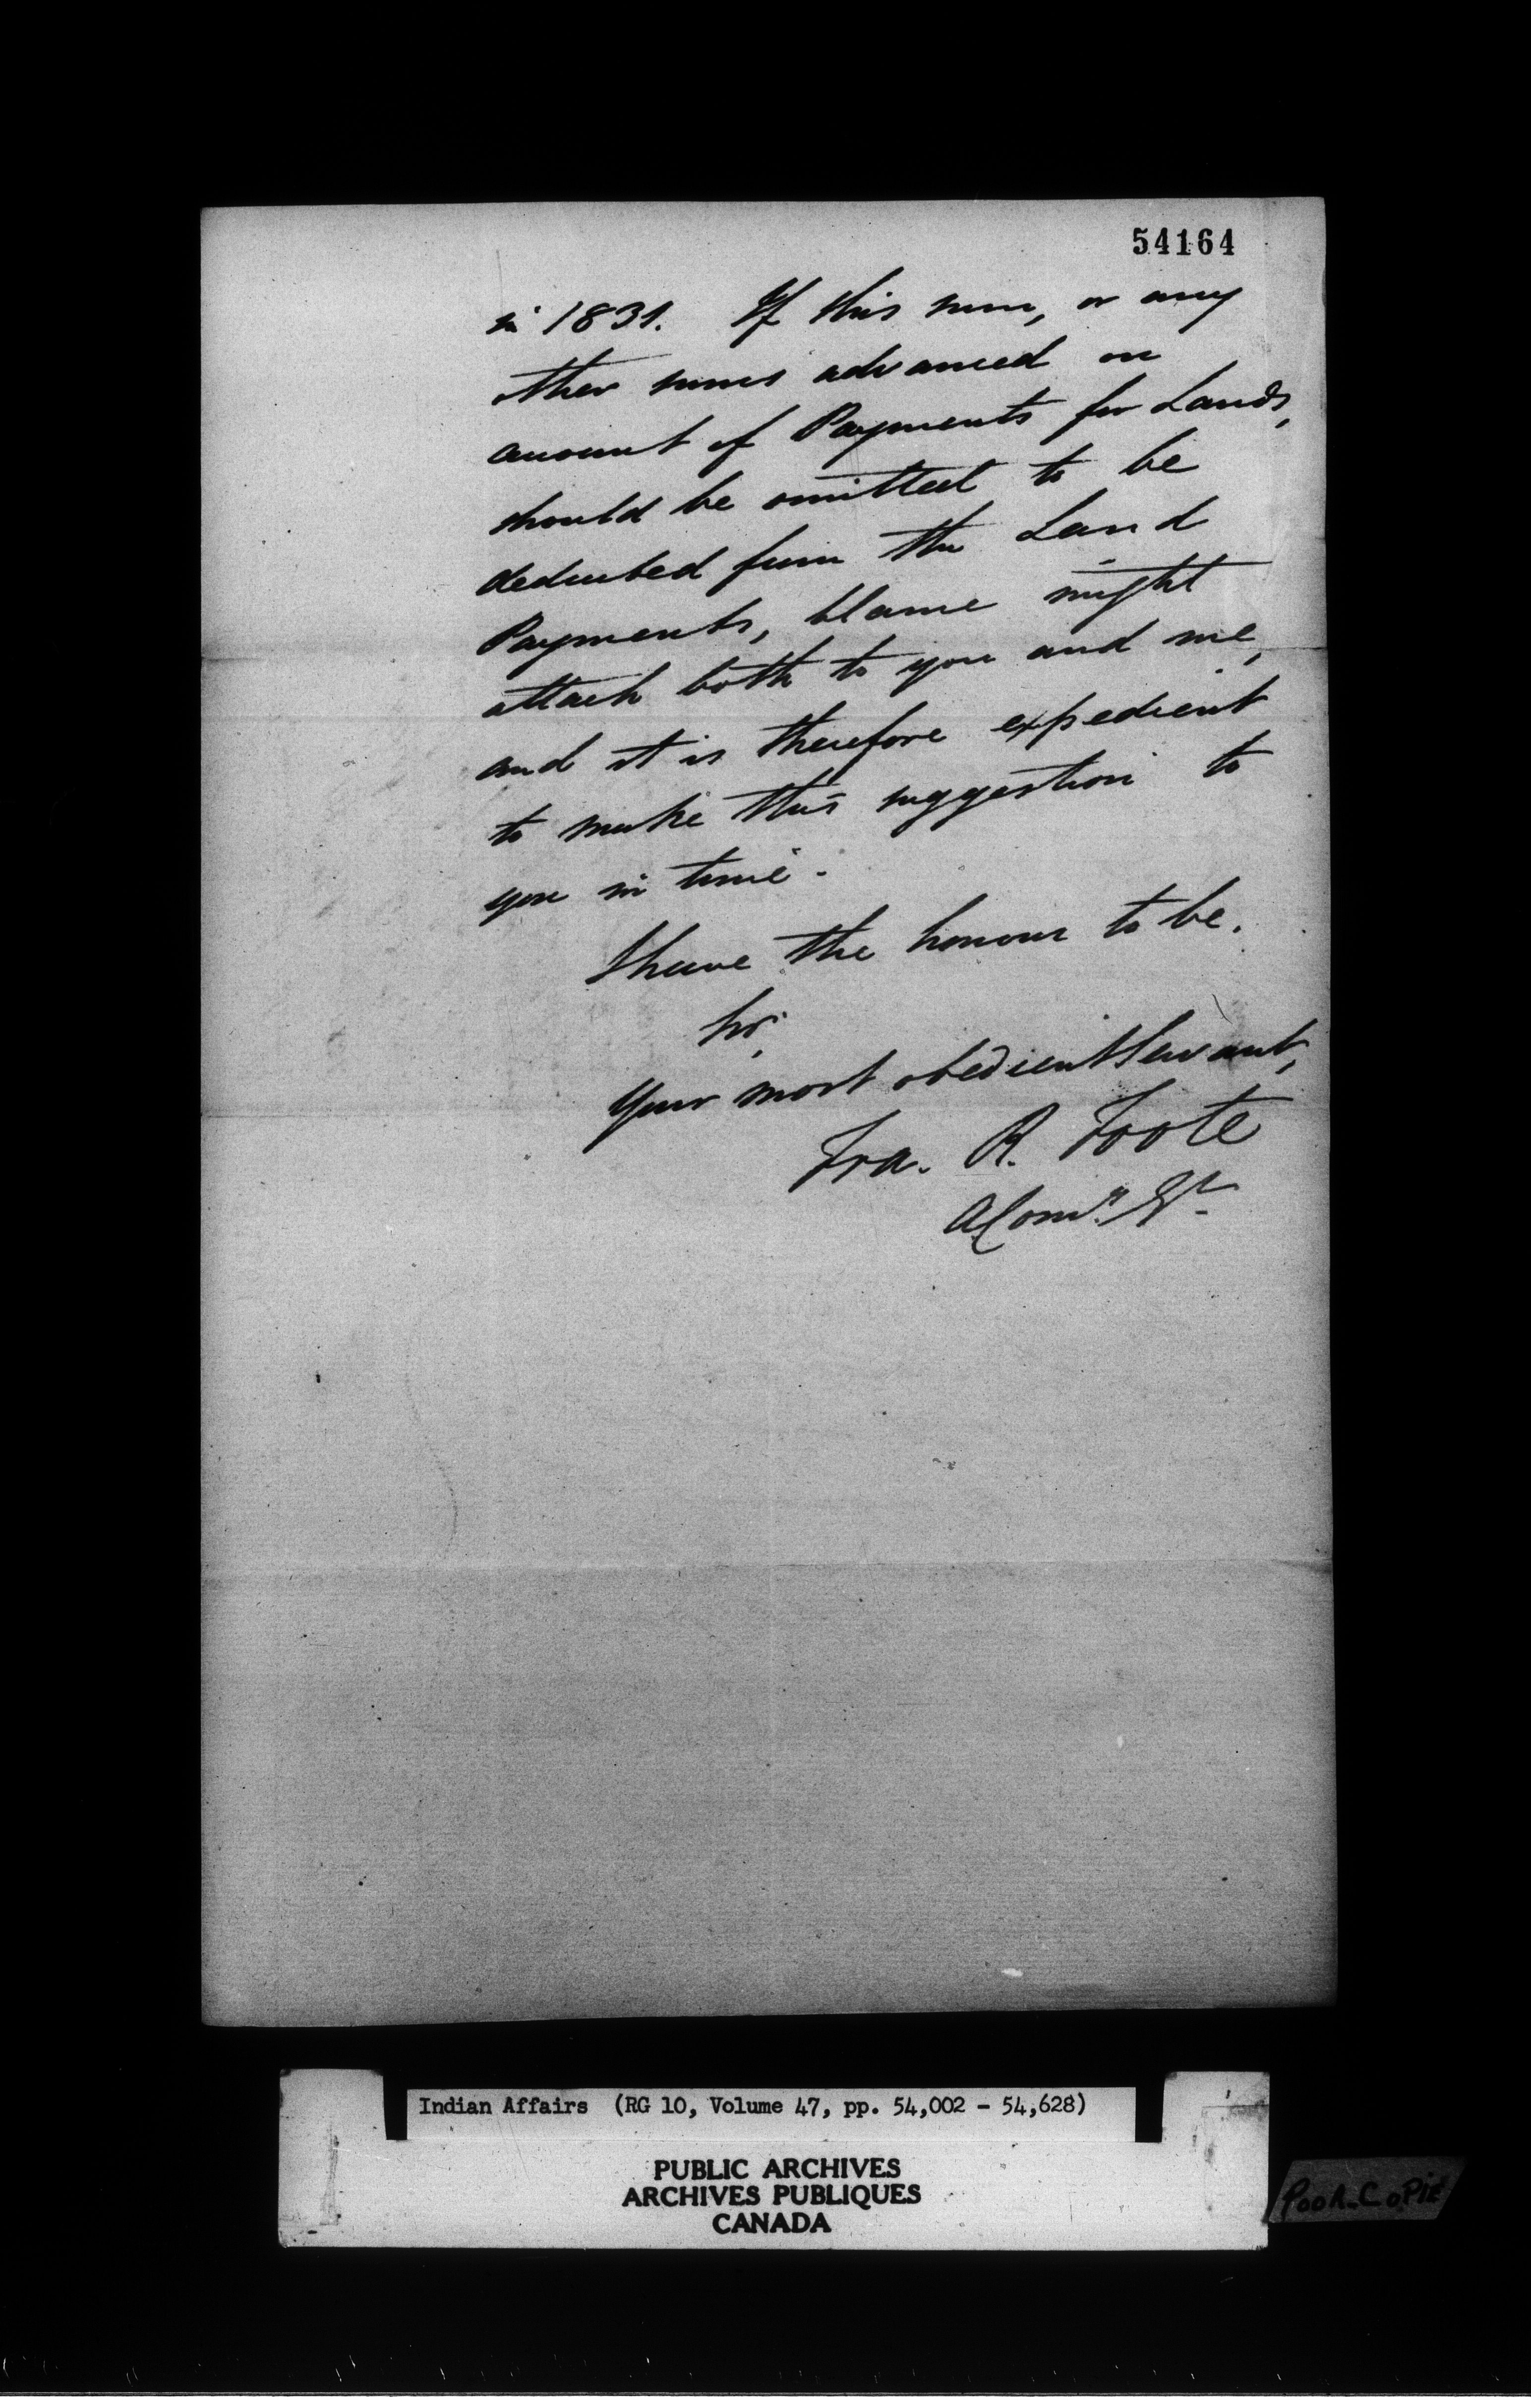 54164
in 1831. If this sum, or any
other sums advanced on
account of Payments for Lands,
should be omitted to be
deducted from the Land
Payments, blame might
attach both to you and me,
and it is therefore expedient
to make this suggestion to
you in time.
I have the honour to be.
Sir,
Your most obedient Servant,
Fra. R. Foote
A. Com.
Indian Affairs (RG 10, Volume 47, pp. 54,002 - 54,628)
PUBLIC ARCHIVES
ARCHIVES PUBLIQUES
CANADA
POOR COPIE